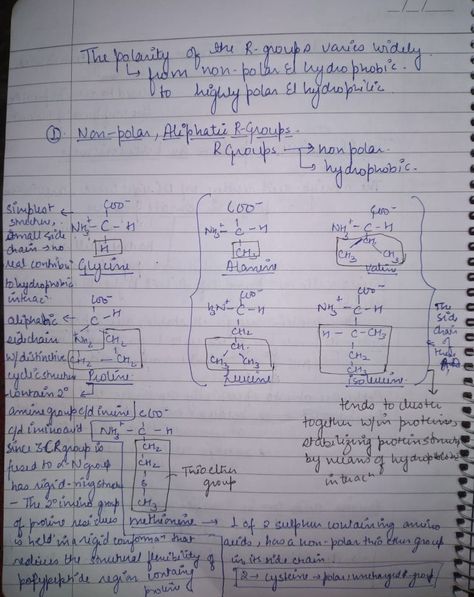 The polarity of the R-groups varies widely.
↳ from non-polar & hydrophobic.
to highly polar & hydrophilic.
① Non-polar, Aliphatic R-Groups.
R Groups → non polar.
↳ hydrophobic.
simplest
structure,
small side
chain → no
real contribu
to hydrophobic
interac
COO⁻
NH₃⁺ - C - H
H
Glycine
COO⁻
NH₃⁺ - C - H
CH₃
Alanine
COO⁻
NH₃⁺ - C - H
CH
CH₃ CH₃
Valine
aliphatic ←
sidechain
w/ distinctive
cyclic structure
contain 2°
COO⁻
C - H
CH₂
CH₂ - CH₂
Proline
COO⁻
H₃N⁺ - C - H
CH₂
CH
CH₃ CH₃
Leucine
COO⁻
NH₃⁺ - C - H
H - C - CH₃
CH₂
CH₃
Isoleucine
The side
chain
of
tends to cluster
together w/in proteins,
stabilizing protein struc
by means of hydrophobic
interac
amino group c/d imine
c/d iminoacid
since 3C R group is
fused to α-N group
has rigid-ring struc
– The 2° imino group
of proline residues
is held in a rigid conformat that
reduces the structural flexibility of
polypeptide region containg
proline
COO⁻
NH₃⁺ - C - H
CH₂
CH₂
S
CH₃
Thioether
group
methionine → 1 of 2 sulphur containing amino
acids, has a non-polar thioether group
in its side chain.
2 → cysteine → polar, uncharged group